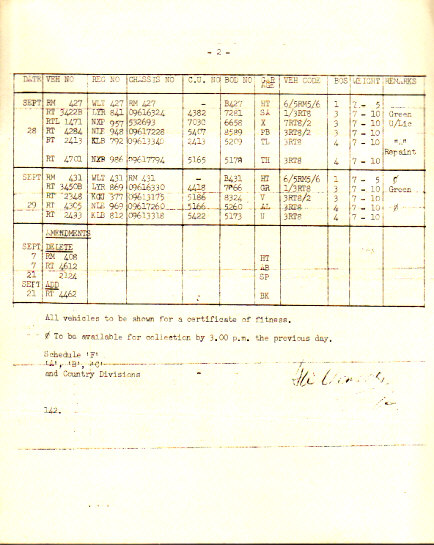 - 2 -
DATE VEH NO REG NO CHASSIS NO C.U. NO BOD NO GAR AGE VEH CODE BOS WEIGHT REMARKS
SEPT RM 427 WLT 427 RM 427 - B427 HT 6/5RM5/6 1 7 - 5
RT 3422B LYR 841 09616324 4382 7281 SA 1/3RT8 3 7 - 10 Green
RTL 1471 NXP 957 532693 7030 6658 X 7RT8/2 3 7 - 10 U/Lic
28 RT 4284 NLE 948 09617228 5407 8589 PB 3RT8/2 3 7 - 10
RT 2413 KLB 792 09613340 2413 5209 TL 3RT8 4 7 - 10 "."
Repaint
RT 4701 NXP 986 09617794 5165 5178 TH 3RT8 4 7 - 10
SEPT RM 431 WLT 431 RM 431 - B431 HT 6/5RM5/6 1 7 - 5 Ø
RT 3450B LYR 869 09616330 4418 7866 GR 1/3RT8 3 7 - 10 Green
RT 2348 KGU 377 09613175 5186 8324 V 3RT8/2 3 7 - 10
29 RT 4305 NLE 969 09617260 5166 5260 AL 3RT8 4 7 - 10 Ø
RT 2433 KLB 812 09613318 5422 5173 U 3RT8 4 7 - 10
AMENDMENTS
SEPT DELETE
7 RM 408 HT
7 RT 4612 AB
21 2124 SP
SEPT ADD
21 RT 4462 BK
All vehicles to be shown for a certificate of fitness.
Ø To be available for collection by 3.00 p.m. the previous day.
Schedule 'F'
'A', 'B', 'C'
and Country Divisions
142.